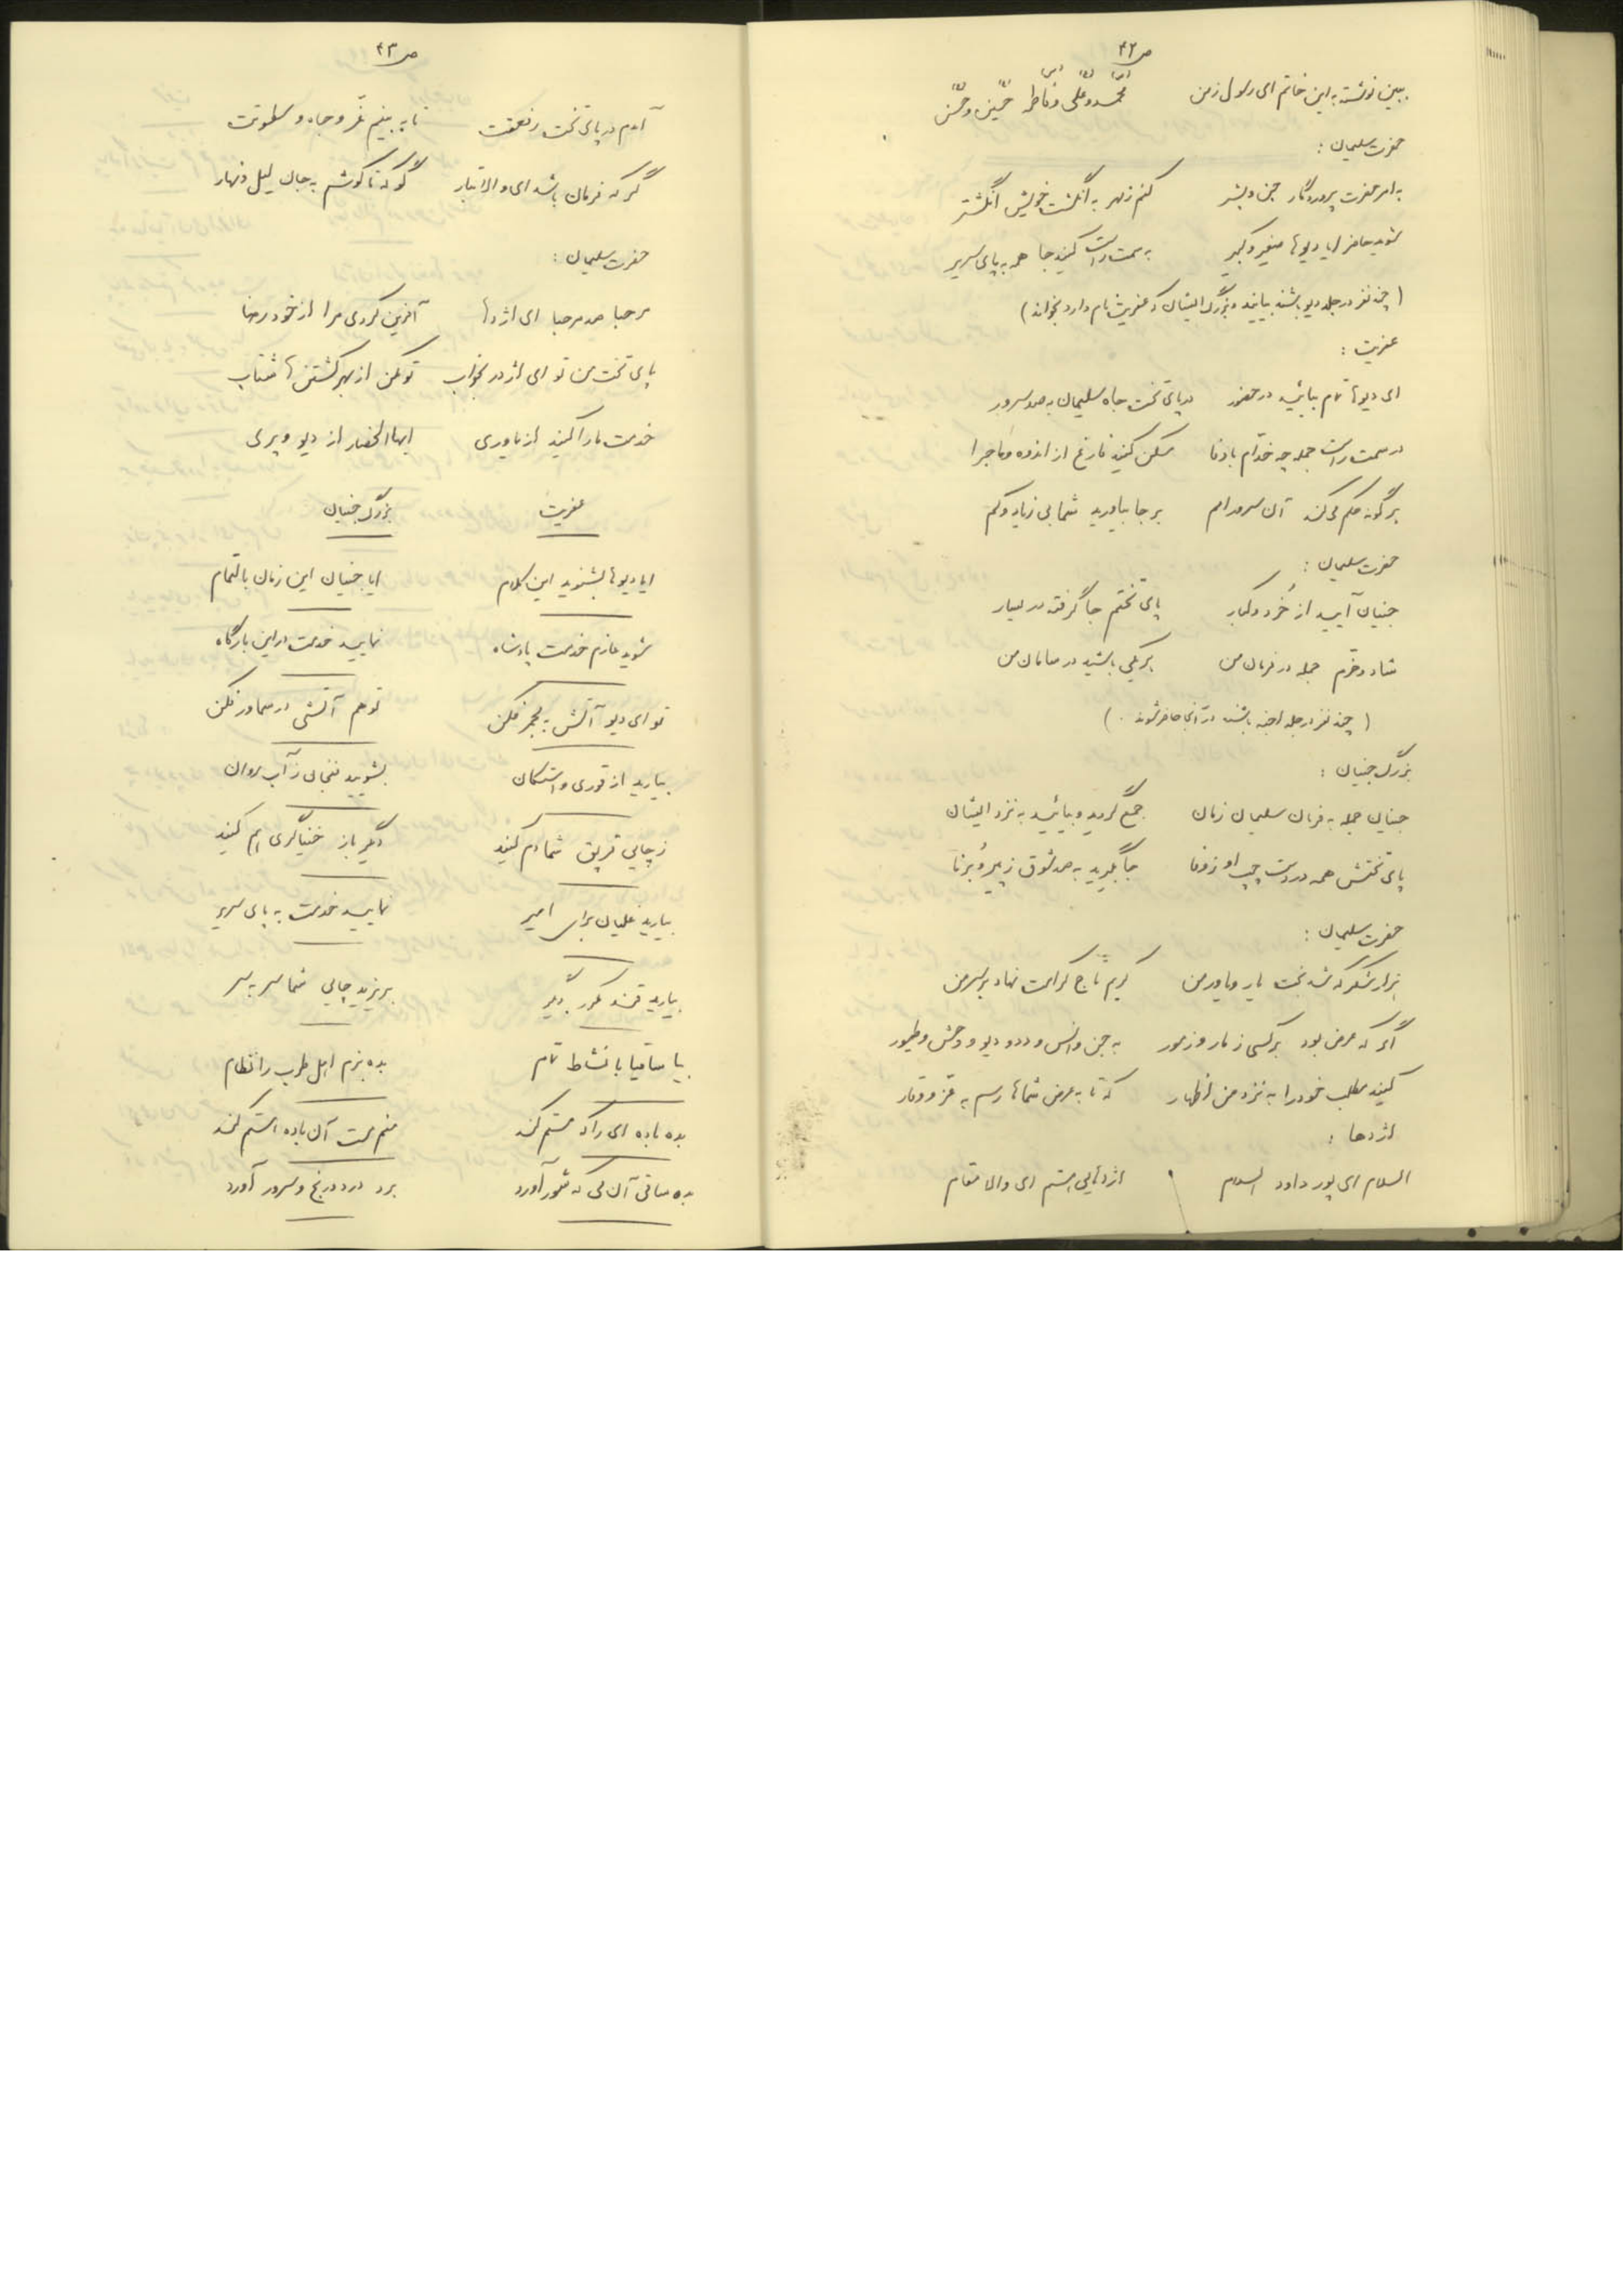 ص ۴۲
ببین نوشته به این خاتم ای رسول زمن محمد و علی و فاطمه حسین و حسن
حضرت سلیمان :
به امر حضرت پروردگار جن و بشر کنم ز مهر به انگشت خویش انگشتر
شوید حاضر ایا دیوها صغیر و کبیر به سمت راست کنید جا همه به پای سریر
( چند نفر در جلد دیو باشند بیایند و بزرگ ایشان که عفریت نام دارد بخواند )
عفریت :
ای دیوها تمام بیائید در حضور در پای تخت جاه سلیمان به صد سرور
در سمت راست جمله چه خدّام باوفا مسکن کنید فارغ از اندوه و ماجرا
هرگونه حکم می کند آن سرور امم برجا بیاورید شما بی زیاد و کم
حضرت سلیمان :
جنیان آیید از خُرد و کبار پای تختم جا گرفته در یسار
شاد و خرّم جمله در فرمان من هر یکی باشید در سامان من
( چند نفر در جلد اجنه باشند در آنجا حاضر شوند . )
بزرگ جنیان :
جنیان جمله به فرمان سلیمان زمان جمع گردید و بیائید به نزد ایشان
پای تختش همه در دست چپ او ز وفا جا بگیرید به صد شوق ز پیر و بُرنا
حضرت سلیمان :
هزار شکر که شد بخت یار و یاور من کریم تاج کرامت نهاد بر سر من
اگر که عرض بود هر کسی ز مار و ز مور به جن و انس و دد و دیو و وحش و طیور
کنید مطلب خود را به نزد من اظهار که تا به عرض شماها رسم به عزّ و وقار
اژدها :
السلام ای پور داود السلام اژدهایی هستم ای والا مقام
ص ۴۳
آمدم در پای تخت رفعتت تا به بینم عزّ و جاه و سطوتت
گر که فرمان باشد ای والا تبار گو که تا کوشم به جان لیل و نهار
حضرت سلیمان :
مرحبا صد مرحبا ای اژدها آفرین کردی مرا از خود رضا
پای تخت من تو ای اژدر بخواب تو مکن از بهر کشتن ها شتاب
خدمت ما را کنید از یاوری ایها الحضار از دیو و پری
عفریت بزرگ جنیان
ایا دیوها بشنوید این کلام ایا جنیان این زمان بالتمام
شوید عازم خدمت پادشاه نمایید خدمت در این بارگاه
تو ای دیو آتش به مجمر فکن تو هم آتشی در سماور فکن
بیارید از قوری و استکان بشویید فنجان ز آب روان
ز چایی قریق شما دم کنید دگر باز خنیاگری هم کنید
بیارید غلیان برای امیر نمایید خدمت به پای سریر
بیارید قند مکرر دگر بریزید چایی شما سر به سر
بیا ساقیا با نشاط تمام بده بزم اهل طرب را نظام
بده باده ای را که مستم کند منم مست آن باده هستم کند
بده ساقی آن می که شور آورد برد درد و رنج و سرور آورد